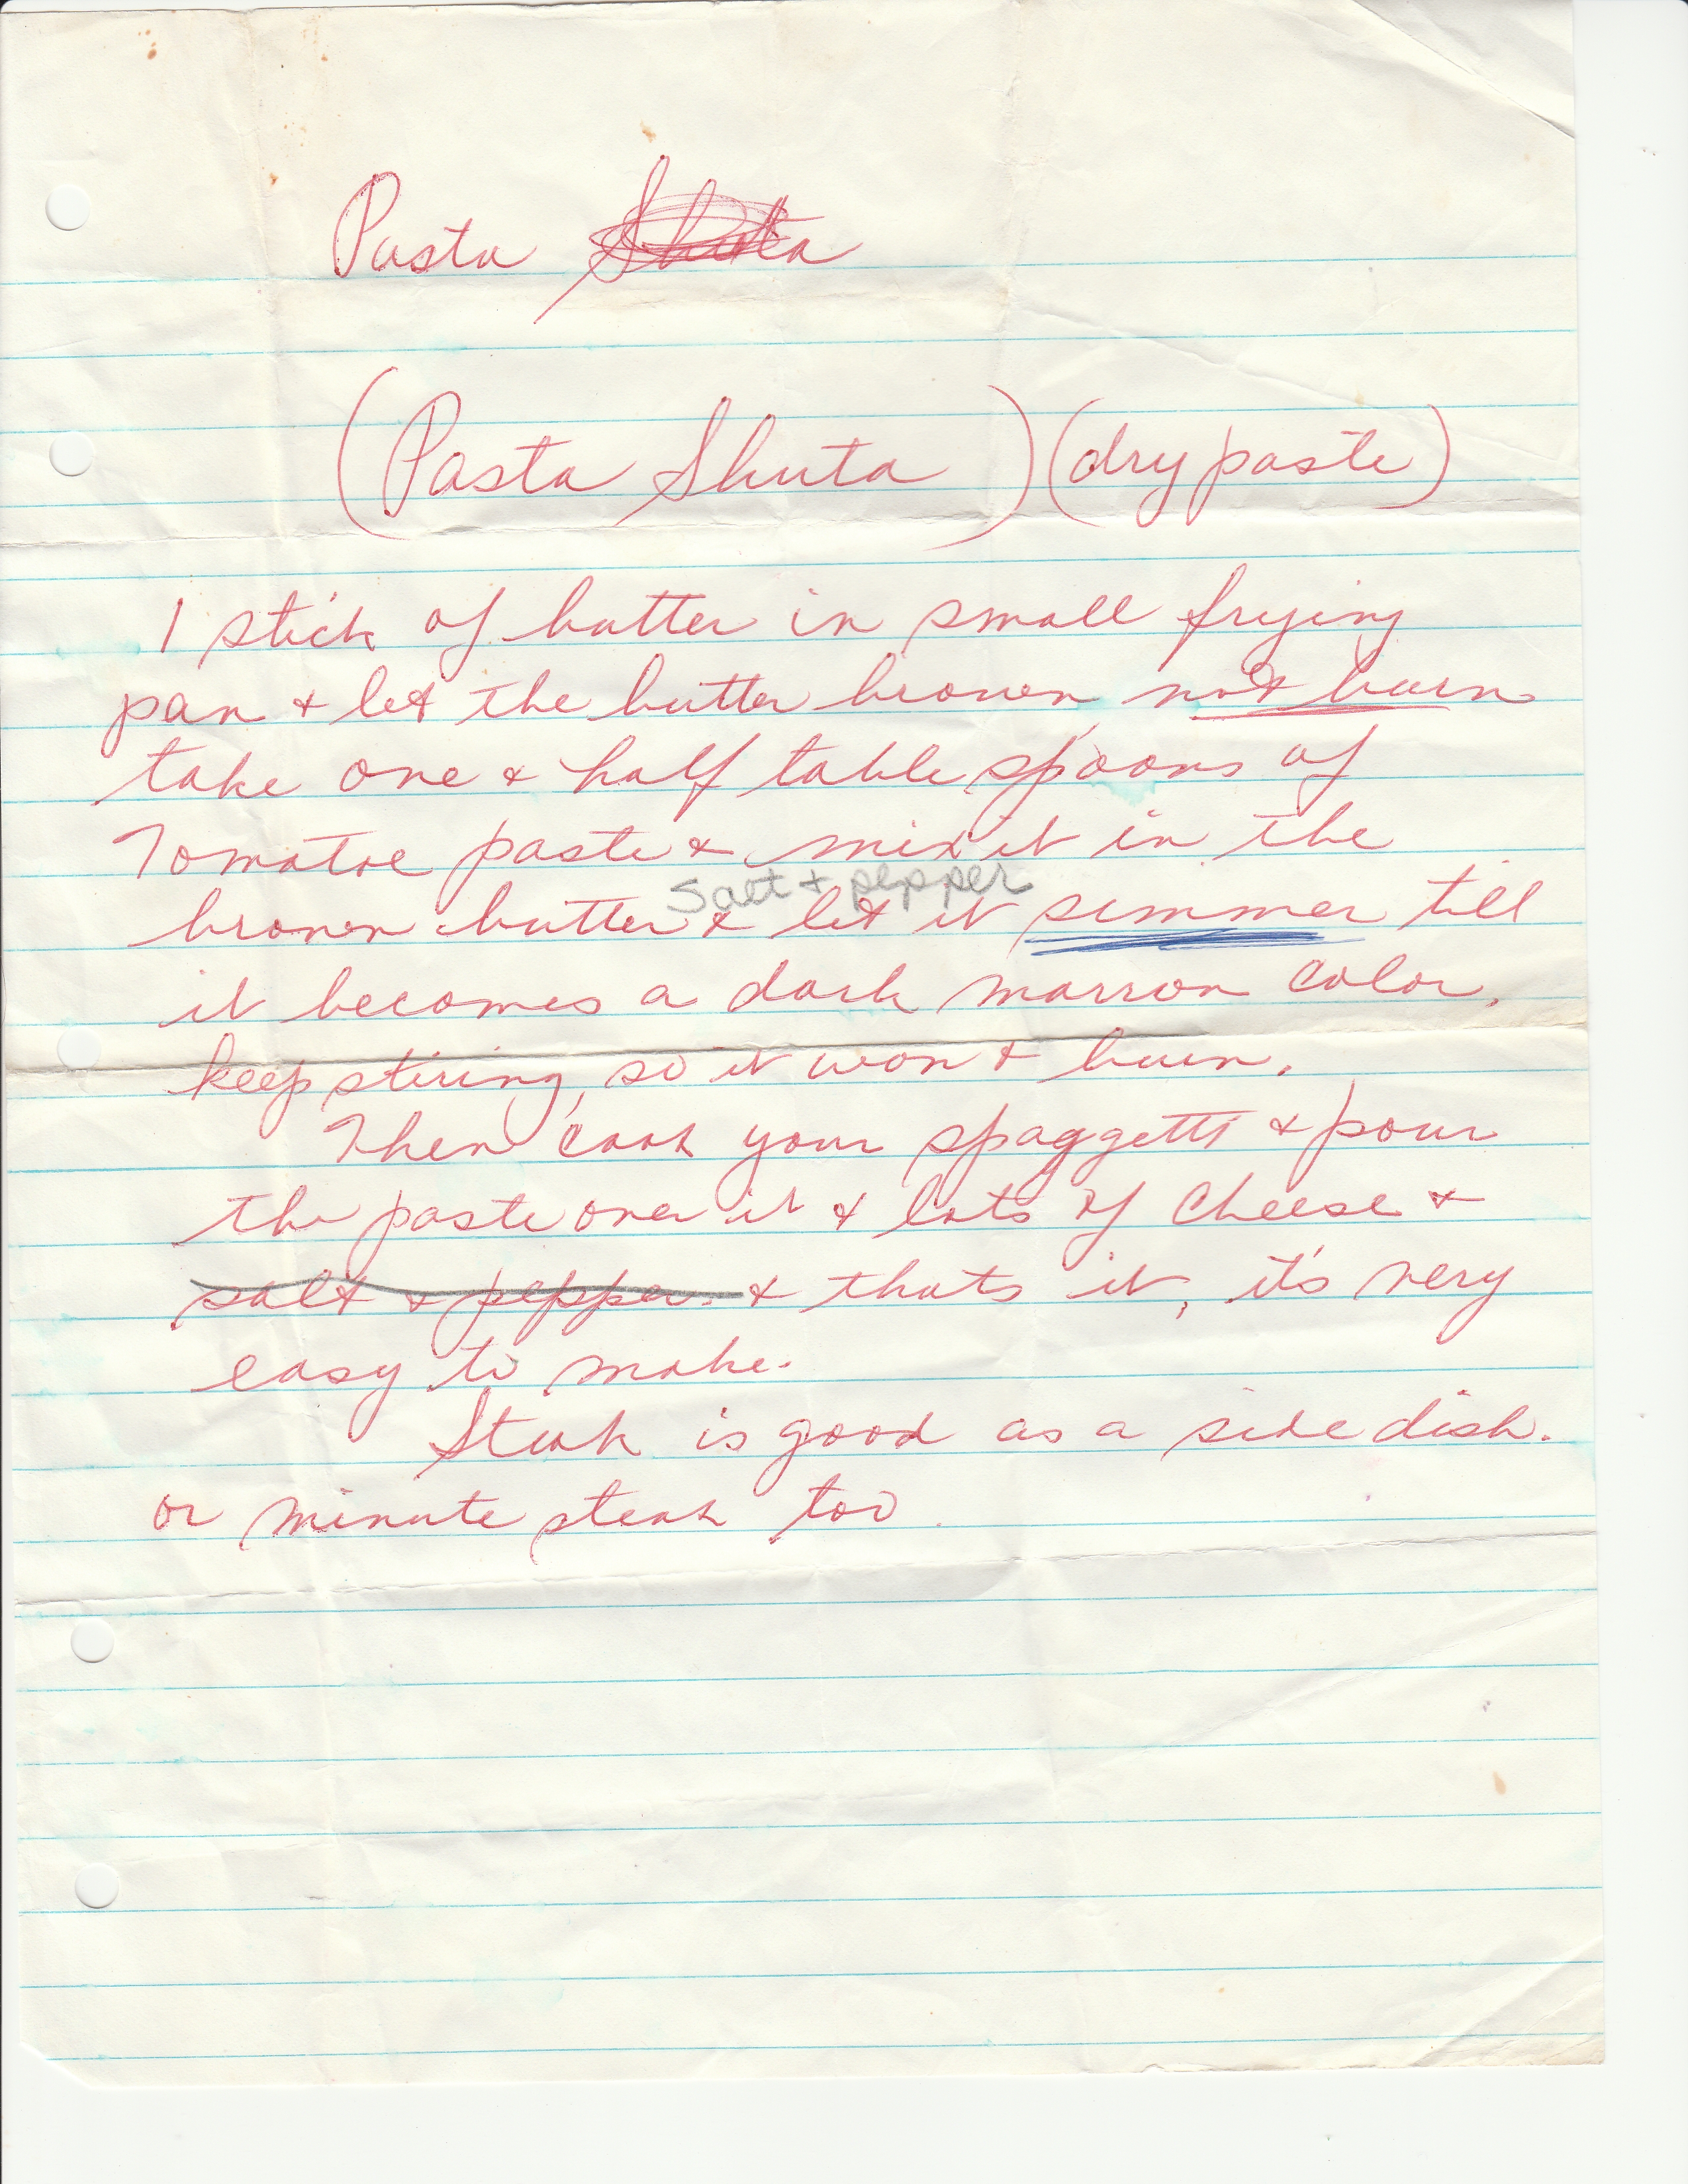 Pasta Shuta
(Pasta Shuta) (dry paste)
1 stick of butter in small frying
pan + let the butter brown not burn
take one + half table spoons of
Tomatoe paste + mix it in the
salt + pepper
brown butter + let it simmer till
it becomes a dark marron color.
keep stiring, so it won't burn.
Then cook your spaggetti + pour
the paste over it + lots of cheese +
salt + pepper. + thats it, it's very
easy to make.
Steak is good as a side dish.
or minute steak too